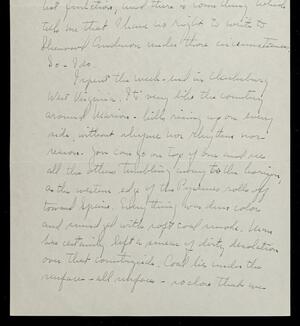 but function, and there is something which
tells me that I have no right to write to
Sherwood Anderson under those circumstances.
So - I do.
I spent the week-end in Clarksburg
West Virginia. It's very like the country
around Marion - hills rising up on every
side, without rhyme nor rhythm nor
reason. You can go on top of one and see
all the others tumbling away to the horizon,
as the western edge of the Pyrenees rolls off
toward Spain. Everything was dun color
and rimmed with soft coal smoke. Man
has certainly left a smear of dirty desolation
over that countryside. Coal lies under the
surface - all surfaces - so close that we